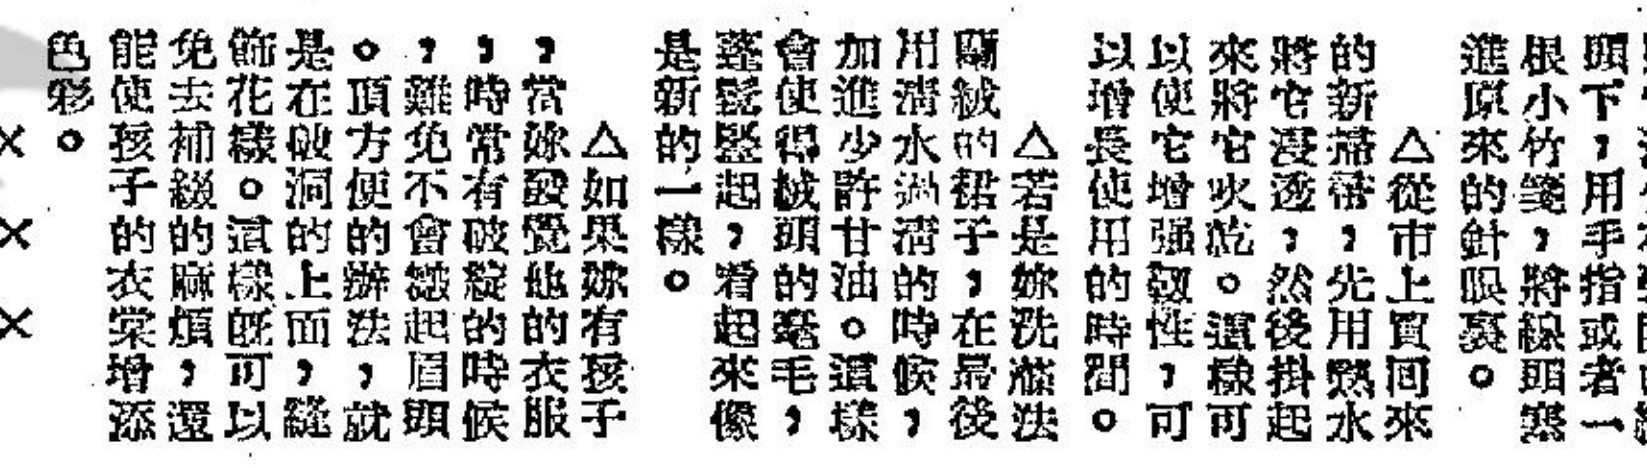 頭下，用手指或者一
根小竹箋，將線頭塞
進原來的針眼裏。
△從市上買囘來
的新掃帚，先用熟水
將它浸透，然後掛起
來將它吹乾。這樣可
以使它增强靱性，可
以增長使用的時間。
△若是妳洗滌法
蘭絨的裙子，在最後
用清水過清的時候，
加進少許甘油。這樣
會使得絨頭的毫毛，
蓬鬆豎起，看起來像
是新的一樣。
△如果妳有孩子
，當妳發覺他的衣服
，時常有破綻的時候
，難免不會皺起眉頭
。頂方便的辦法，就
是在破洞的上面，縫
飾花樣。這樣旣可以
免去補綴的麻煩，還
能使孩子的衣棠增添
色彩。
× × ×